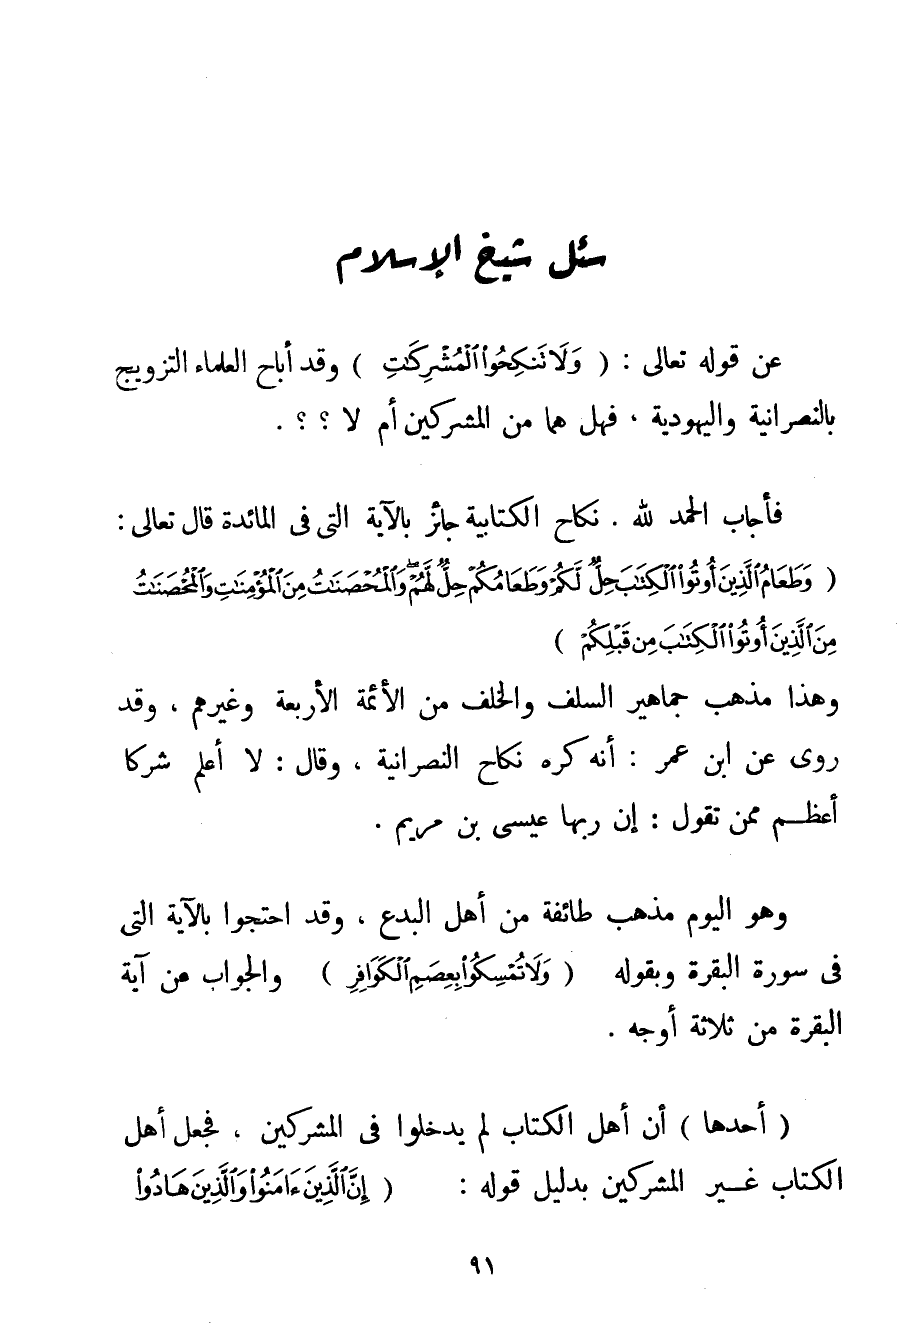 سئل شيخ الإسلام
عن قوله تعالى : ( وَلَا تَنكِحُوا۟ ٱلْمُشْرِكَـٰتِ ) وقد أباح العلماء التزويج
بالنصرانية واليهودية ، فهل هما من المشركين أم لا ؟ ؟ .
فأجاب الحمد لله . نكاح الكتابية جائز بالآية التى فى المائدة قال تعالى :
( وَطَعَامُ ٱلَّذِينَ أُوتُوا۟ ٱلْكِتَـٰبَ حِلٌّ لَّكُمْ وَطَعَامُكُمْ حِلٌّ لَّهُمْ ۖ وَٱلْمُحْصَنَـٰتُ مِنَ ٱلْمُؤْمِنَـٰتِ وَٱلْمُحْصَنَـٰتُ
مِنَ ٱلَّذِينَ أُوتُوا۟ ٱلْكِتَـٰبَ مِن قَبْلِكُمْ )
وهذا مذهب جماهير السلف والخلف من الأئمة الأربعة وغيرهم ، وقد
روى عن ابن عمر : أنه كره نكاح النصرانية ، وقال : لا أعلم شركا
أعظم ممن تقول : إن ربها عيسى بن مريم .
وهو اليوم مذهب طائفة من أهل البدع ، وقد احتجوا بالآية التى
فى سورة البقرة وبقوله ( وَلَا تُمْسِكُوا۟ بِعِصَمِ ٱلْكَوَافِرِ ) والجواب عن آية
البقرة من ثلاثة أوجه .
( أحدها ) أن أهل الكتاب لم يدخلوا فى المشركين ، فجعل أهل
الكتاب غير المشركين بدليل قوله : ( إِنَّ ٱلَّذِينَ ءَامَنُوا۟ وَٱلَّذِينَ هَادُوا۟
٩١